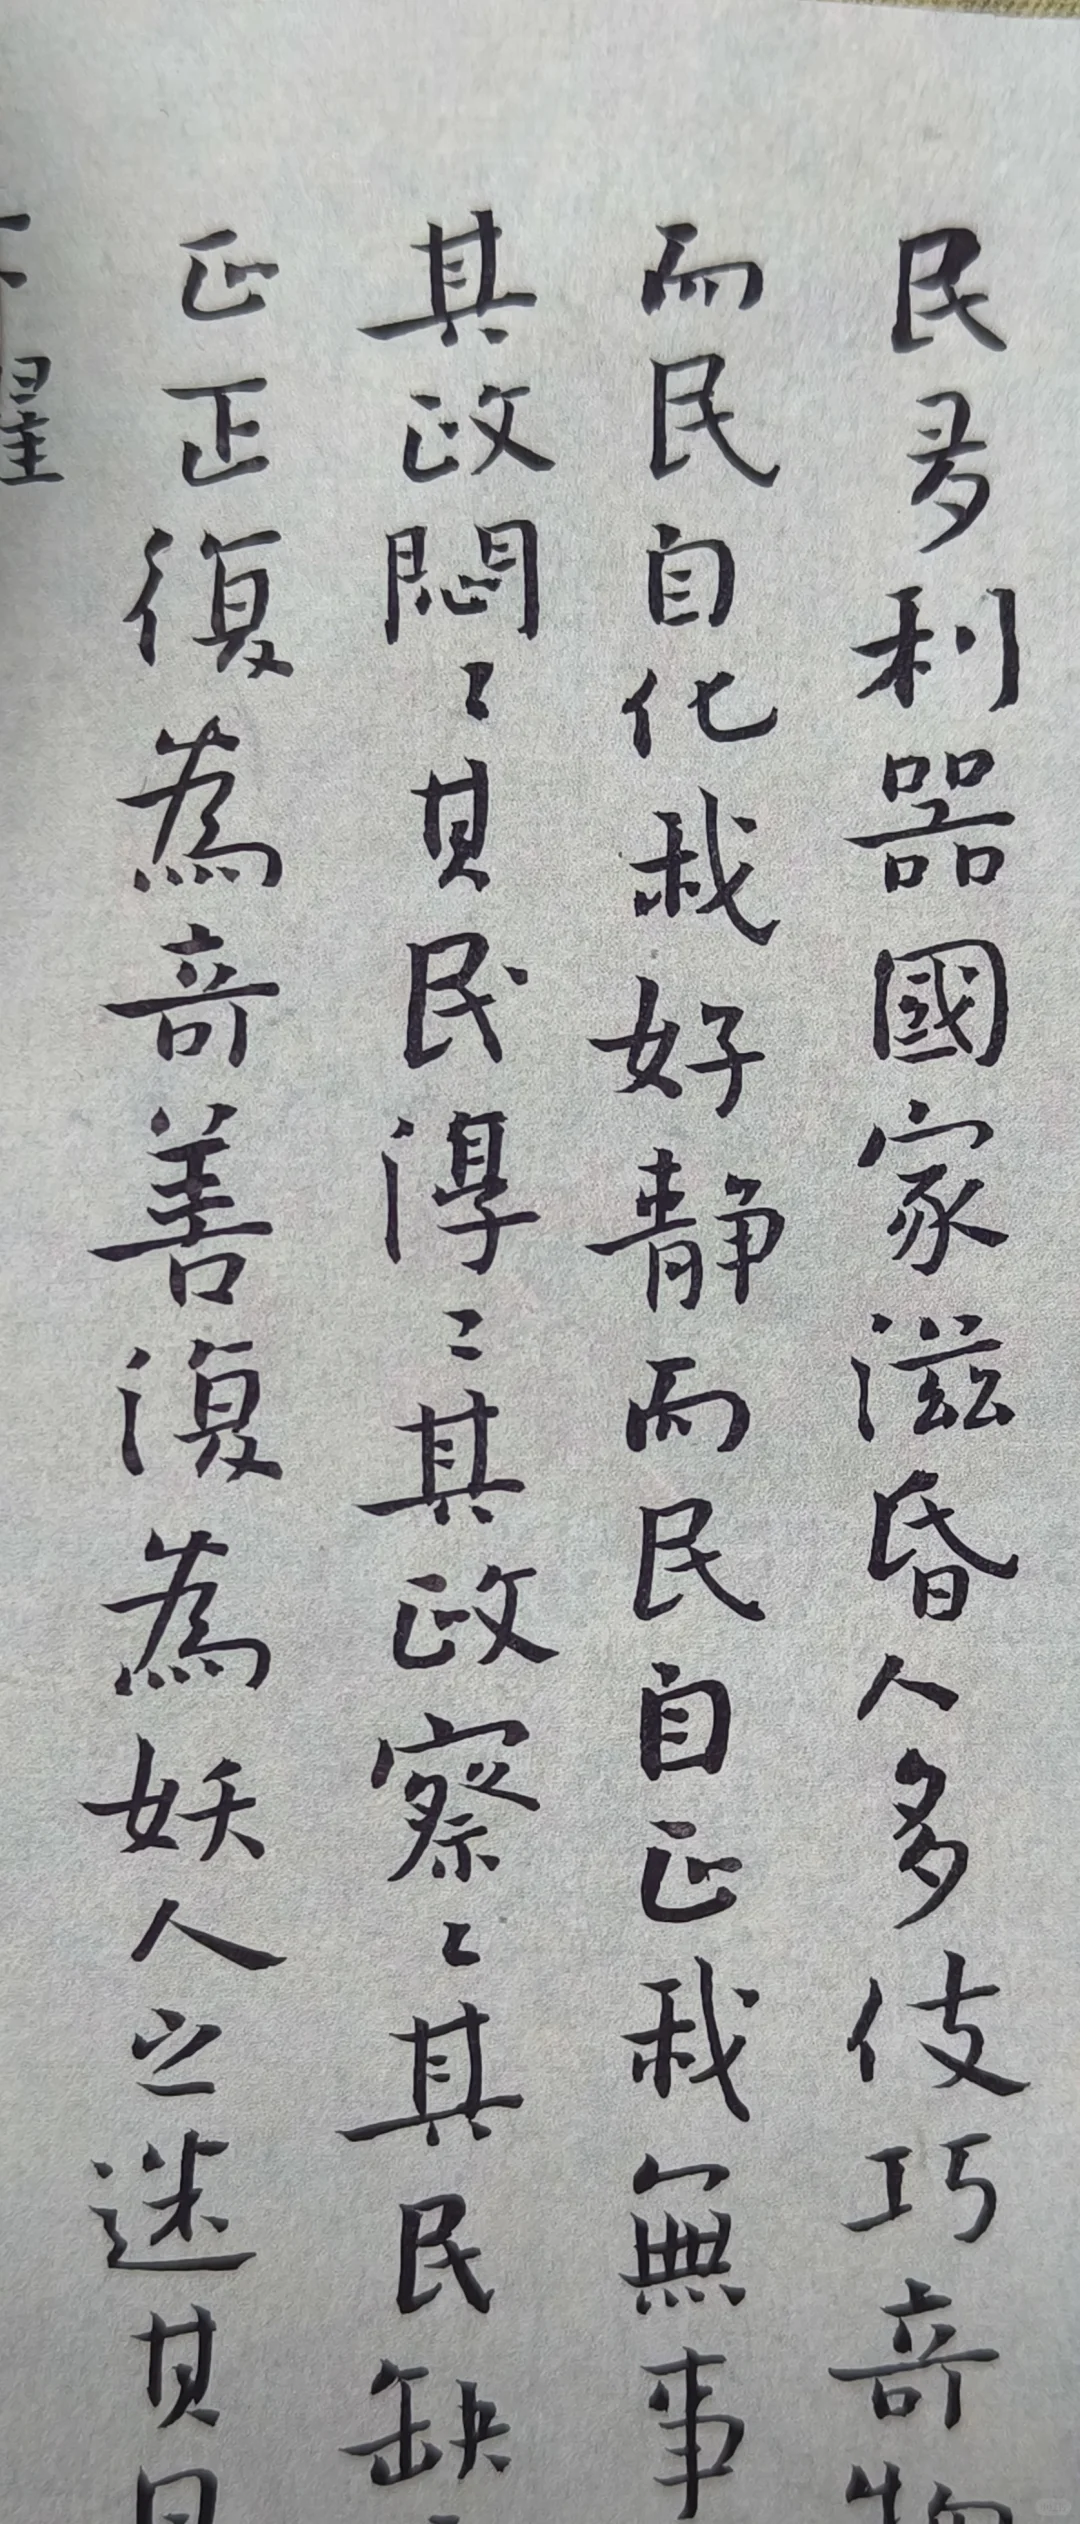 民多利器國家滋昏人多伎巧奇物
而民自化我好静而民自正我無事
其政悶〻其民淳〻其政察〻其民缺
正正復為奇善復為妖人之迷其日